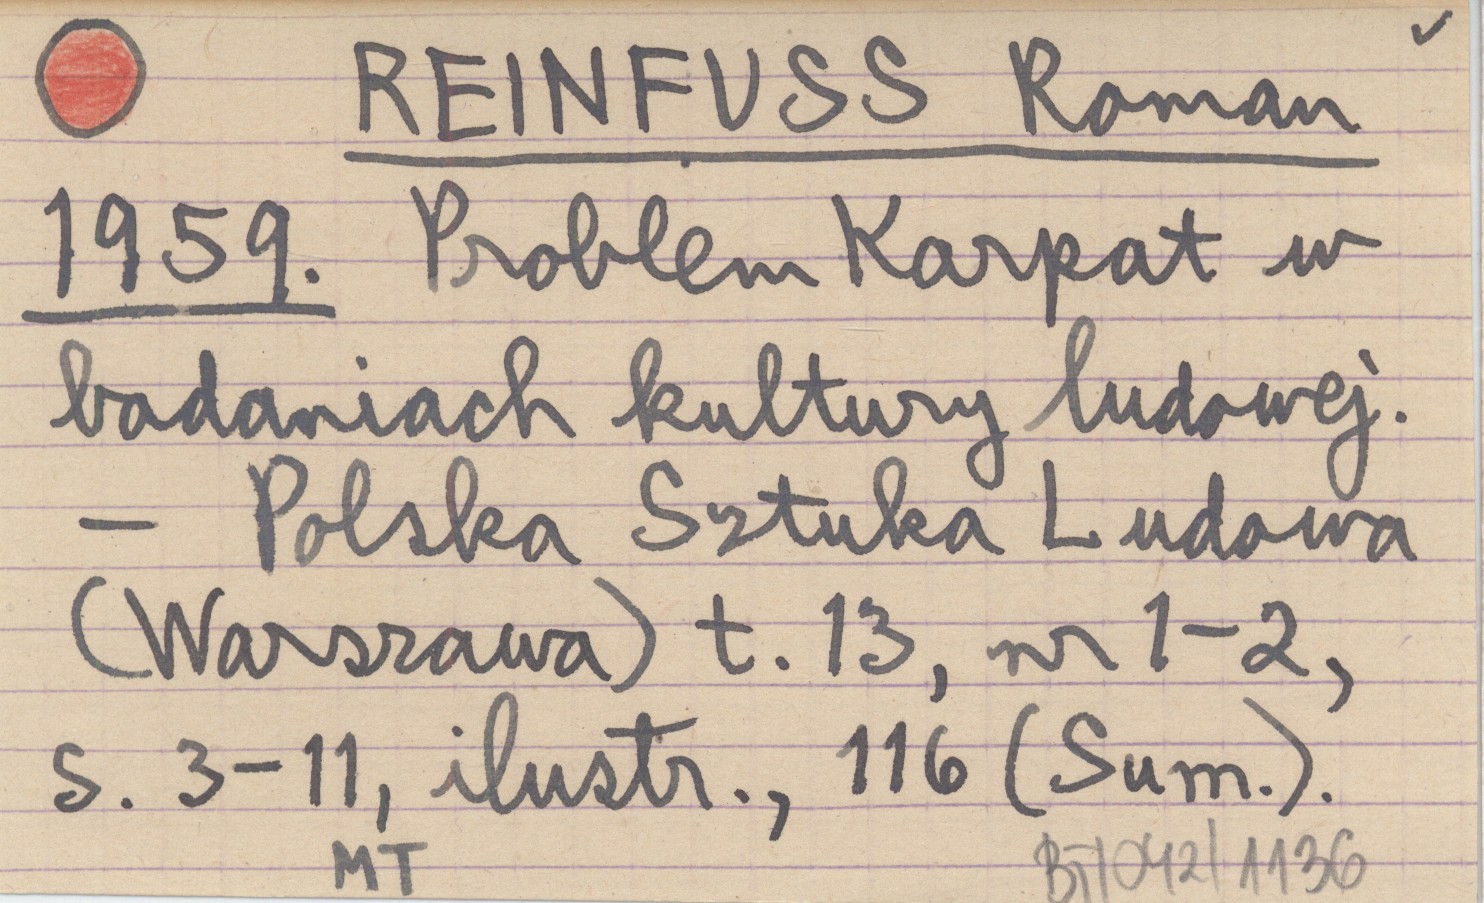 REINFUSS Roman
1959. Problem Karpat w
badaniach kultury ludowej.
– Polska Sztuka Ludowa
(Warszawa) t. 13, nr 1–2,
s. 3–11, ilustr., 116 (Sum.).
MT
BT/042/1136